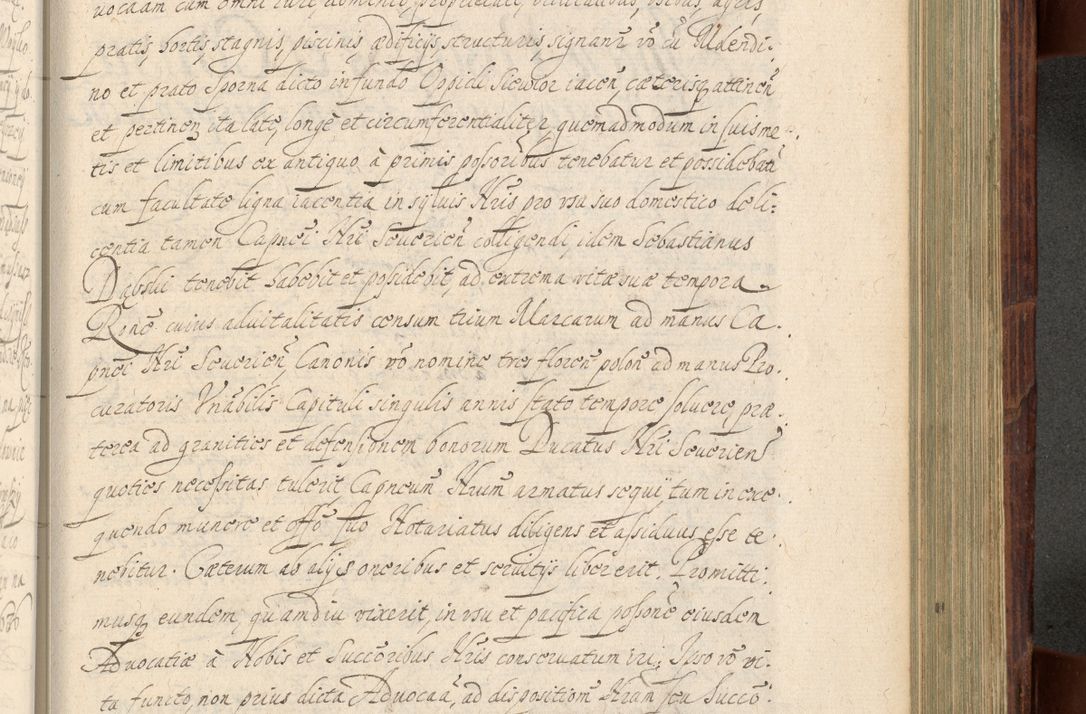 uocaam cum omni iure, dominio, proprietate, utilitatibus, usibus, agris,
pratis, hortis, stagnis, piscinis, ædificijs, structuris, signanr vō cū Uldendi-
no et prato Sporna dicto in fundo Oppidi Sieuior iacen, cæterisq attinen
et pertinen ita late, longe et circumferentialiter, quemadmodum in suis me-
tis et limitibus ex antiquo à primis possoribus tenebatur et possidebatr
cum facultate ligna iacentia in syluis Nris pro usu suo domestico de li-
centia tamen Capnei Nri Seuerien colligendi, idem Sebastianus
Dąbski tenebit habebit et possidebit, ad extrema vitæ suæ tempora
Rōne cuius aduitalitatis censum trium Marcarum ad manus Ca-
pnei Nri Seuerien, Canonis vō nomine tres floren polon ad manus Pro-
curatoris Vnābilis Capituli singulis annis stato tempore soluere, præ-
terea ad granities et defensionem bonorum Ducatus Nri Seuerien
quoties necessitas tulerit Capneum Nrum armatus sequi, tum in exe-
quendo munere et offo suo Notariatus diligens et assiduus esse te-
nebitur. Cæterum ab alijs oneribus et seruitijs liber erit. Promitti-
musq eundem, quamdiu vixerit, in usu et pacifica possone eiusdem
Aduocatiæ à Nobis et Succoribus Nris conseruatum iri; Ipso vō vi-
ta functo, non prius dicta Aduocaa, ad dispositiom Nram seu Succo-